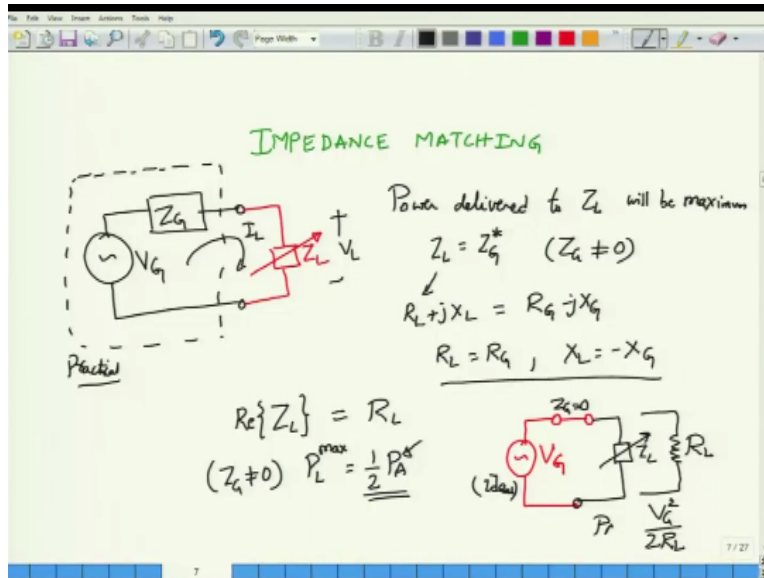 File Edit View Insert Actions Tools Help
Page Width
B I
IMPEDANCE MATCHING
Z_G
V_G
I_L
Z_L
+
V_L
-
Practical
Power delivered to Z_L will be maximum
Z_L = Z_G^* (Z_G ≠ 0)
R_L + jX_L = R_G - jX_G
R_L = R_G , X_L = -X_G
Re{Z_L} = R_L
(Z_G ≠ 0) P_L^max = 1/2 P_A
Z_G=0
V_G
(Ideal)
Z_L
R_L
V_G^2 / 2R_L
7 / 27
7